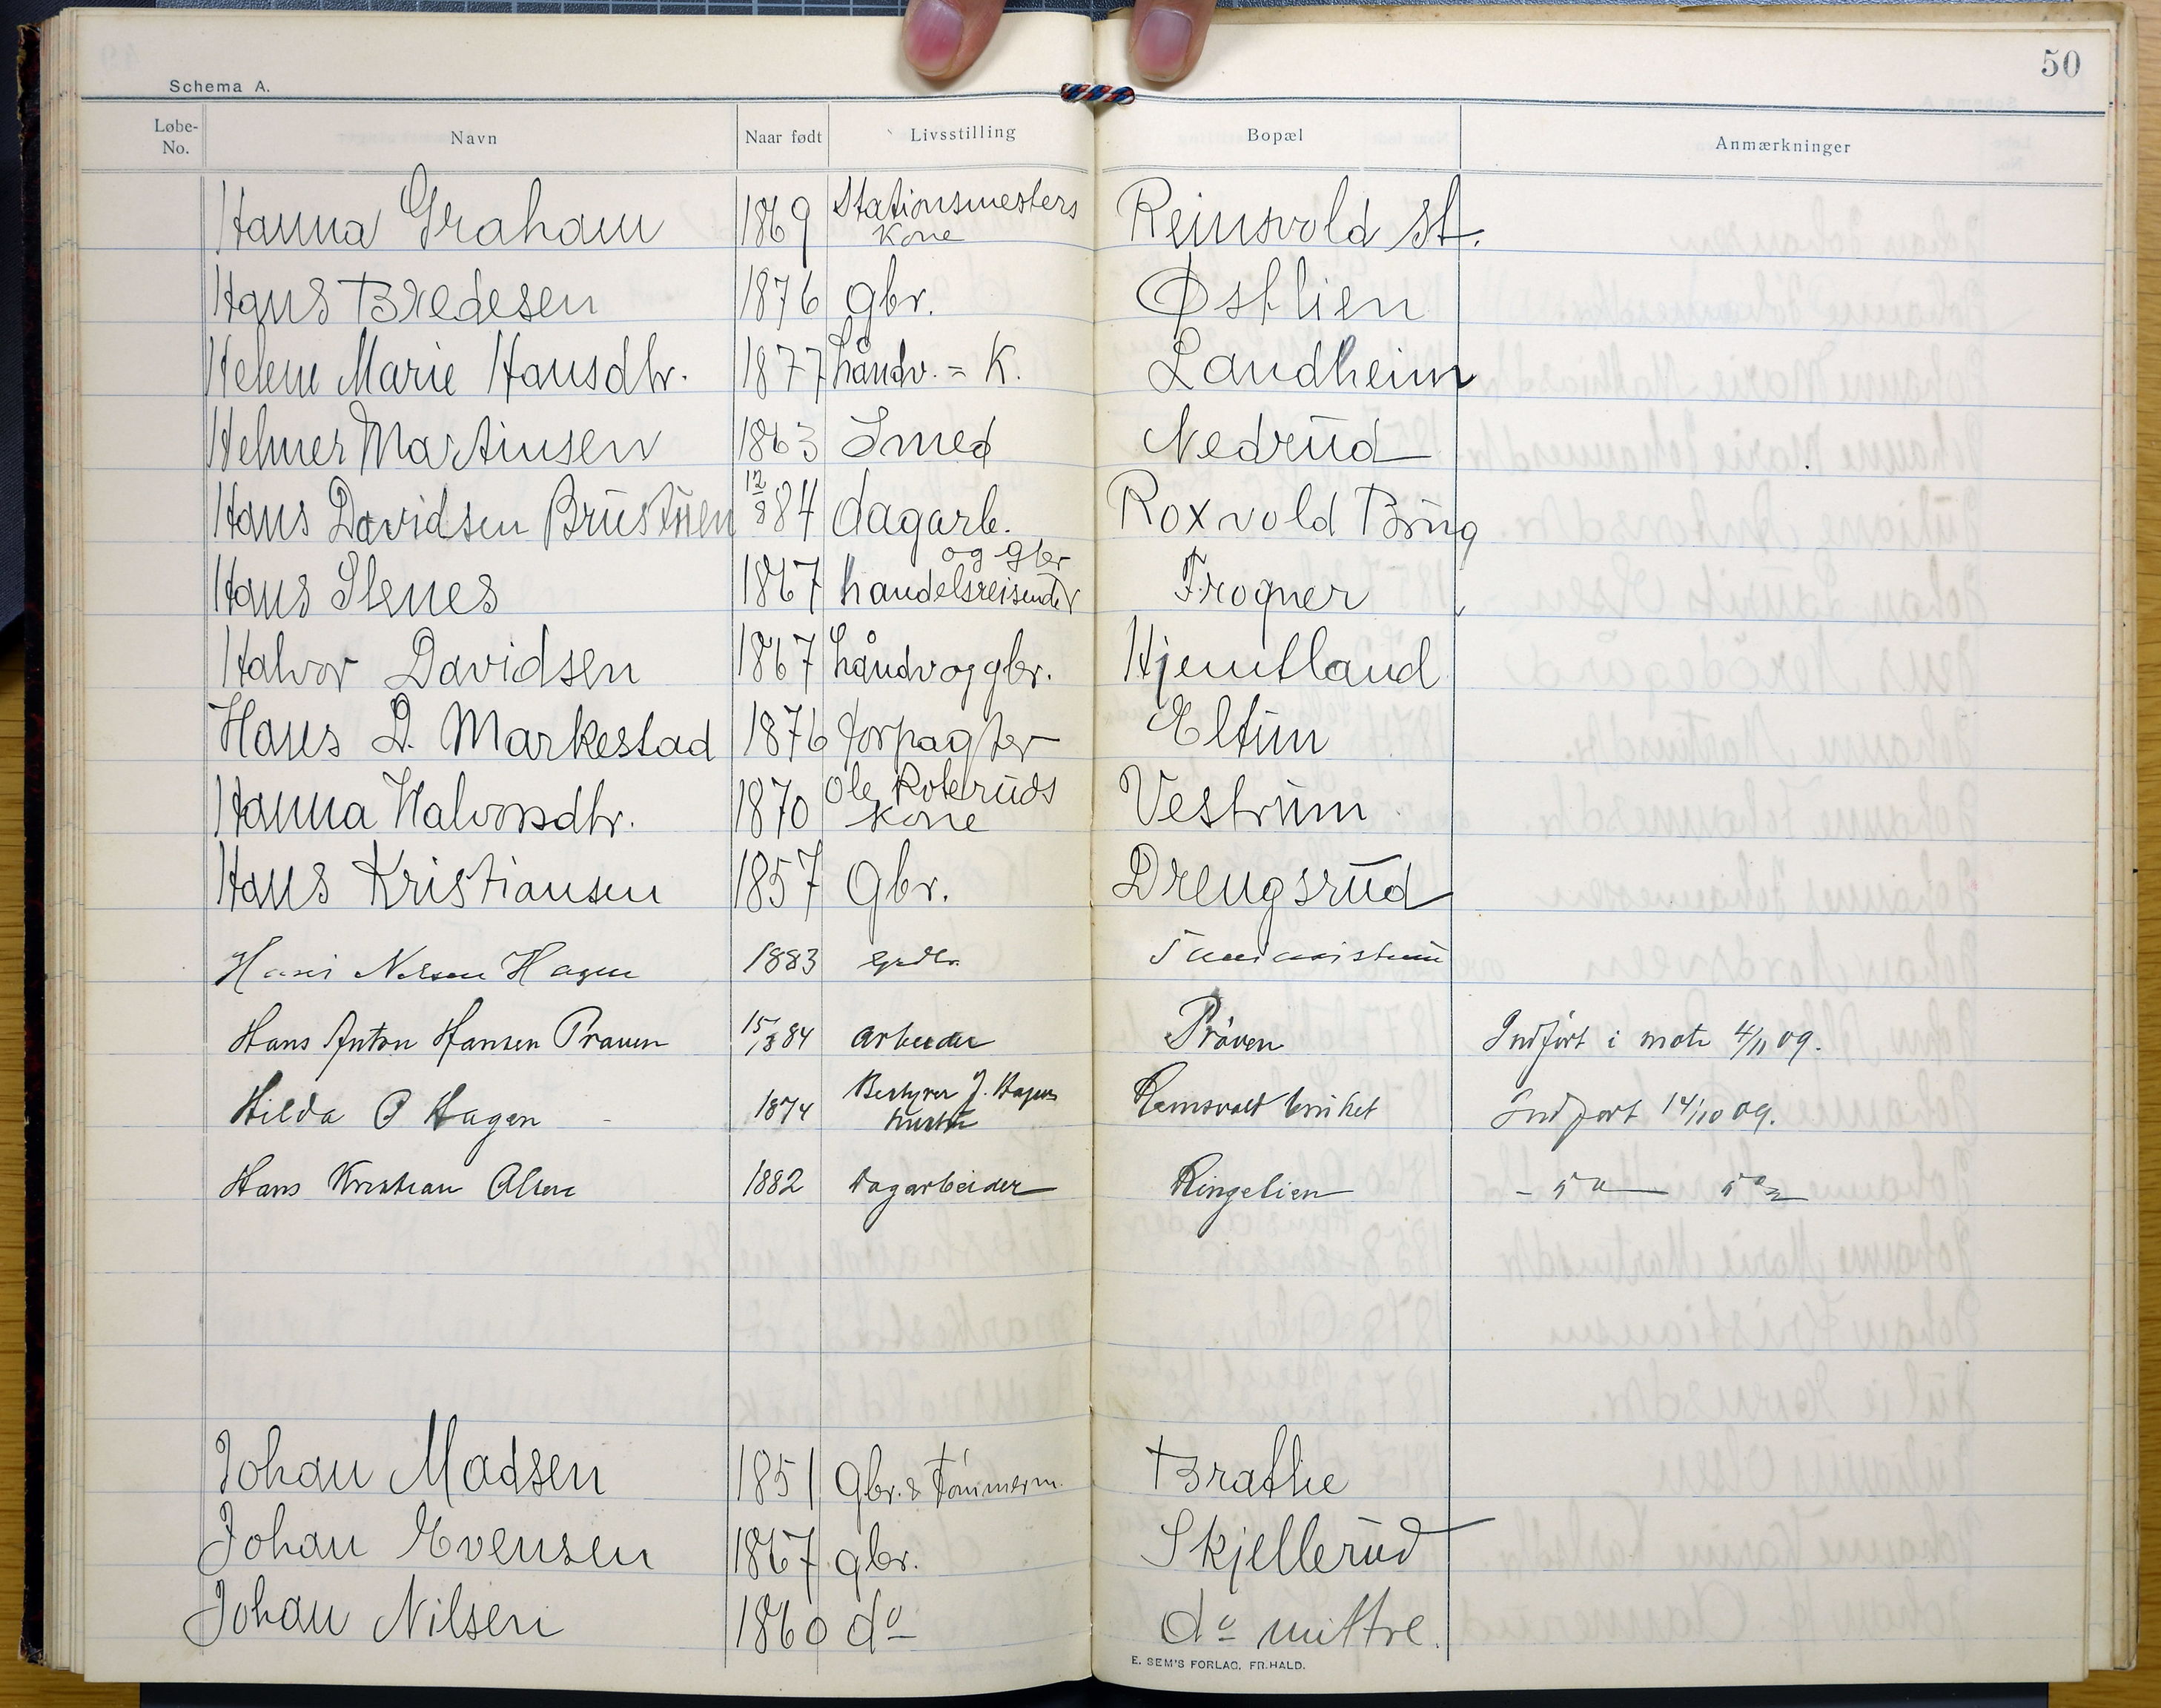 50
Schema A.
Løbe-No. Navn Naar født Livsstilling Bopæl Anmærkninger
Hanna Graham 1869 Stationsmesters Kone Reinsvold st.
Hans Bredesen 1876 gbr. Østlien
Helene Marie Hansdtr. 1877 håndv. = K. Landheim
Helmer Martinsen 1863 Smed Nedrud
Hans Davidsen Brustuen 12/8 84 dagarb. Roxvold Brug
Hans Stenes 1867 handelsreisende og gbr Frogner
Halvor Davidsen 1867 håndv og gbr. Hjemtland
Hans D. Markestad 1876 forpagter Eltun
Hanna Halvorsdtr. 1870 Ole Roteruds Kone Vestrum
Hans Kristiansen 1857 Gbr. Drengsrud
Hans Nelson Hagen 1883
Hans Anton Hansen Prøven 15/3 84 arbeider Prøven Indført i møte 4/11 09.
Hilda O Hagen 1874 Bestyrer J. Hagens hustru Reinsvold bruket Indført 14/10 09.
Hans Kristian Olsen 1882 Dagarbeider Ringelien - do do
Johan Madsen 1851 Gbr. & Tømmerm. Bratlie
Johan Evensen 1867 gbr. Skjellerud
Johan Nilsen 1860 do do mittre.
E. SEM'S FORLAG, FR.HALD.